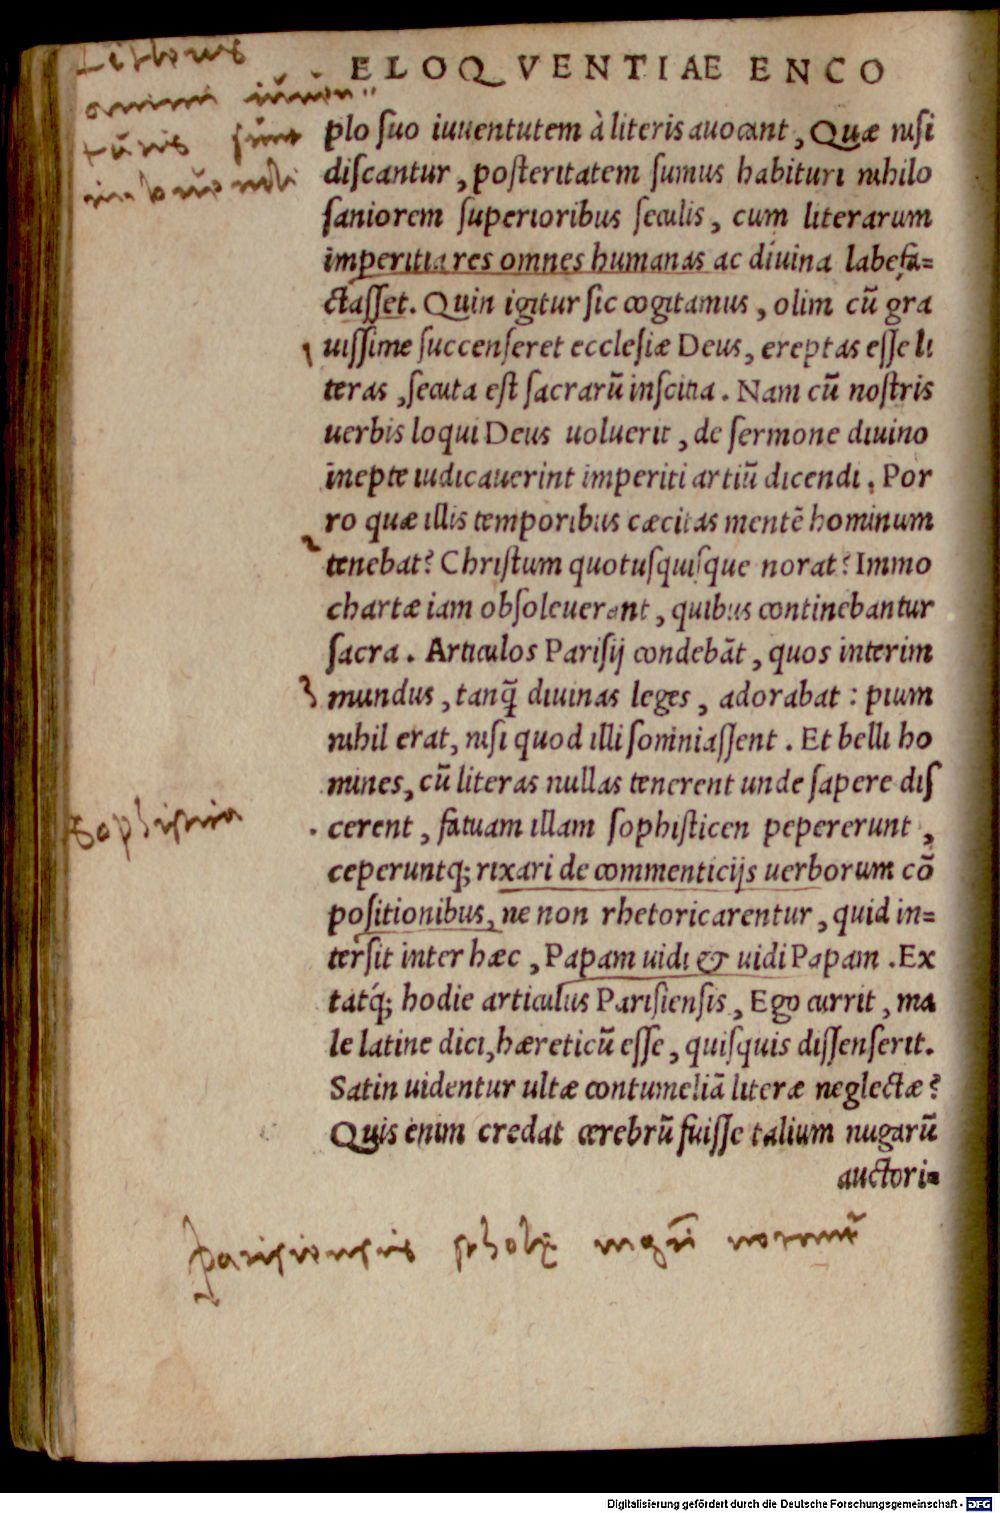 ELOQVENTIAE ENCO
Litteris
animi iuuen-
tutis sunt
imbuendi
plo suo iuuentutem à literis auocant, Quæ nisi
discantur, posteritatem sumus habituri nihilo
saniorem superioribus seculis, cum literarum
imperitia res omnes humanas ac diuina labefa=
ctasset. Quin igitur sic cogitamus, olim cũ gra
uissime succenseret ecclesiæ Deus, ereptas esse li
teras, secuta est sacrarũ inscitia. Nam cũ nostris
uerbis loqui Deus uoluerit, de sermone diuino
inepte iudicauerint imperiti artiũ dicendi. Por
ro quæ illis temporibus cæcitas mentẽ hominum
tenebat? Christum quotusquisque norat? Immo
chartæ iam obsoleuerant, quibus continebantur
sacra. Articulos Parisij condebãt, quos interim
mundus, tanq̃ diuinas leges, adorabat: pium
nihil erat, nisi quod illi somniassent. Et belli ho
mines, cũ literas nullas tenerent unde sapere dis
Sophistria
cerent, fatuam illam sophisticen pepererunt,
ceperuntq; rixari de commenticijs uerborum cõ
positionibus, ne non rhetoricarentur, quid in=
tersit inter hæc, Papam uidi & uidi Papam. Ex
tatq́; hodie articulus Parisiensis, Ego currit, ma
le latine dici, hæreticũ esse, quisquis dissenserit.
Satin uidentur ultæ contumeliã literæ neglectæ?
Quis enim credat cerebrũ fuisse talium nugarũ
auctori=
parisiensis schole
Digitalisierung gefördert durch die Deutsche Forschungsgemeinschaft - DFG